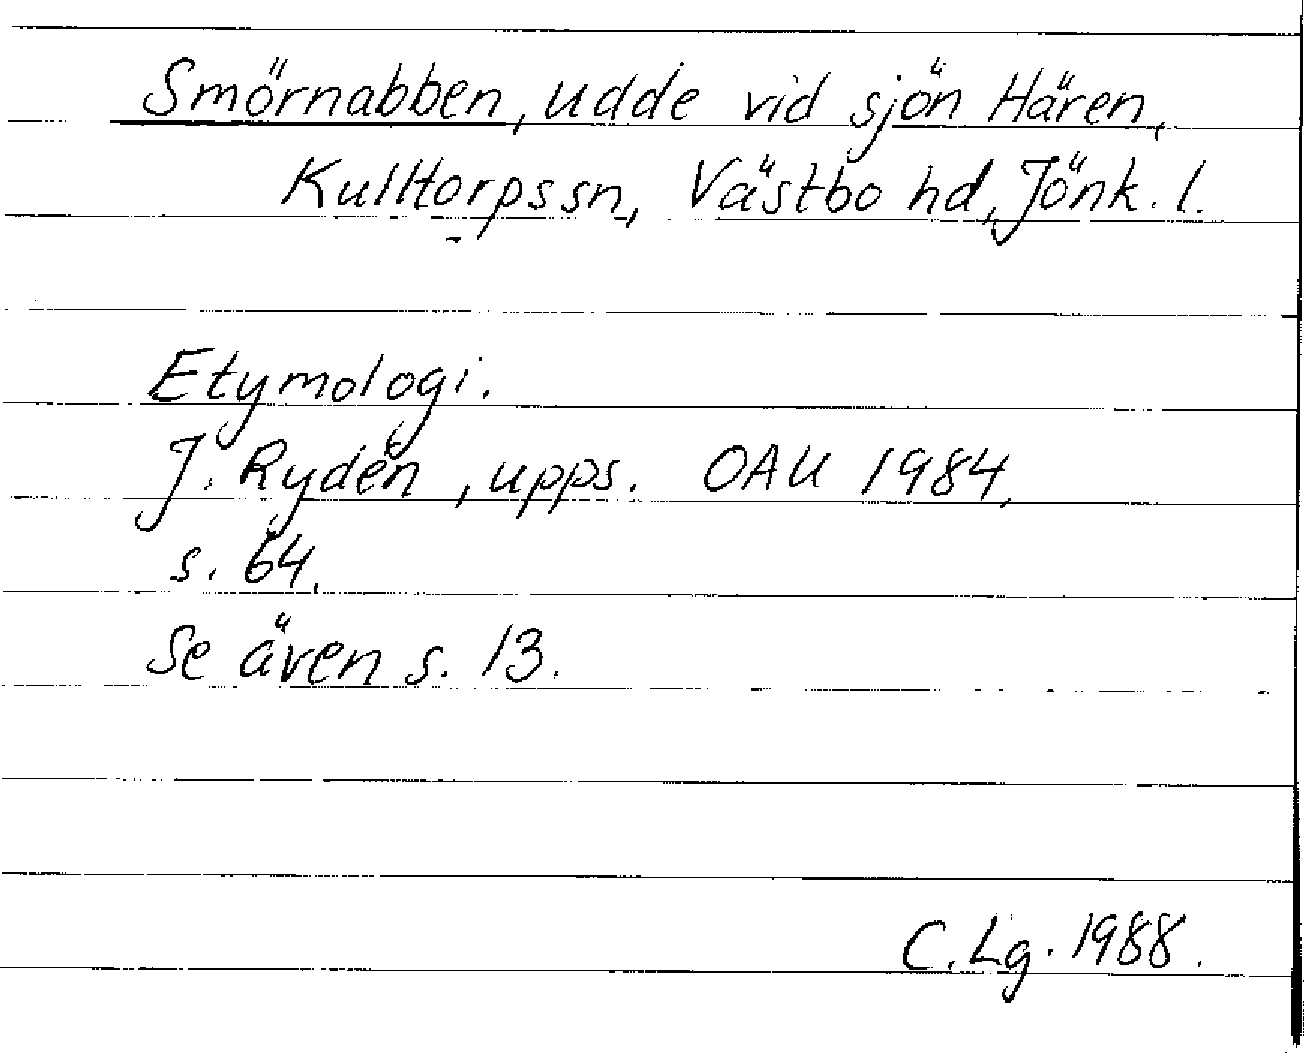 Smörnabben, udde vid sjön Hären,
Kulltorpssn, Västbo hd, Jönk. l.
Etymologi.
J. Rydén, upps. OAU 1984,
s. 64.
Se även s. 13.
C. Lg. 1988.